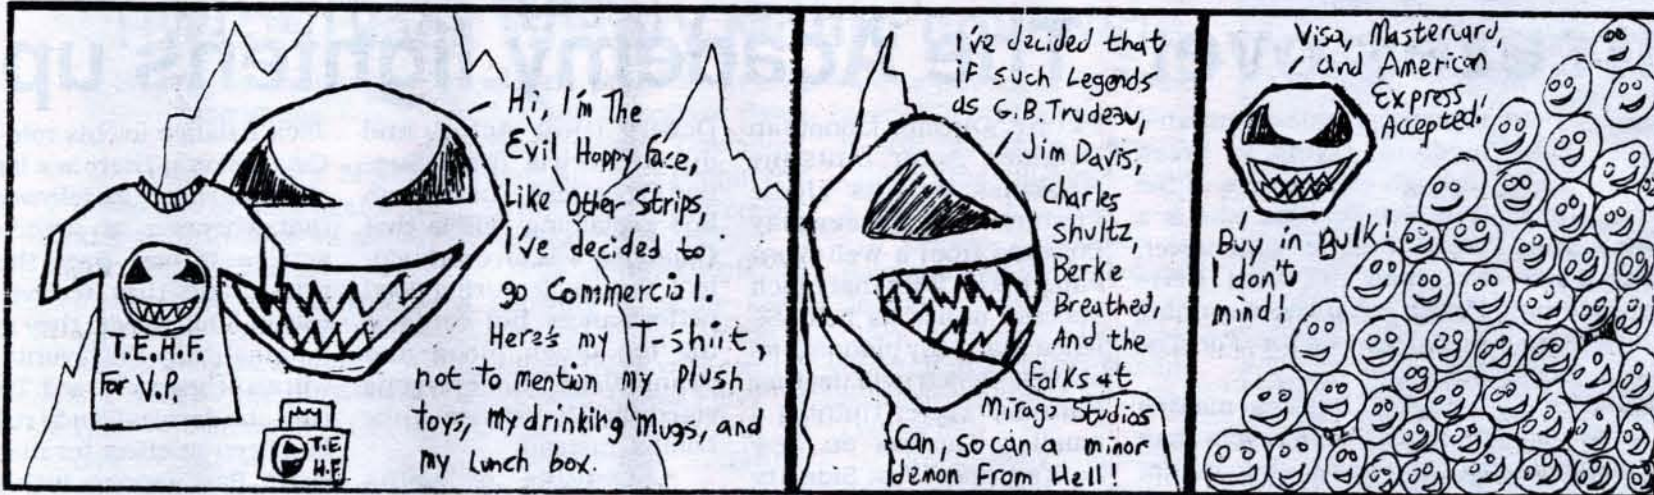 Hi, I'm The
Evil Happy face,
Like Other strips
I've decided to
go Commercial.
Here's my T-shirt,
not to mention my plush
toys, my drinking Mugs, and
my Lunch box.
T.E.H.F.
For
V.P.
T.E
H.F.
I've decided that
if such Legends
as G.B. Trudeau,
Jim Davis,
Charles
Shultz,
Berke
Breathed,
And the
folks at
Mirage Studios
Can, so can a minor
demon From Hell!
Visa, Mastercard,
and American
Express
Accepted!
Buy in Bulk!
I don't
mind!